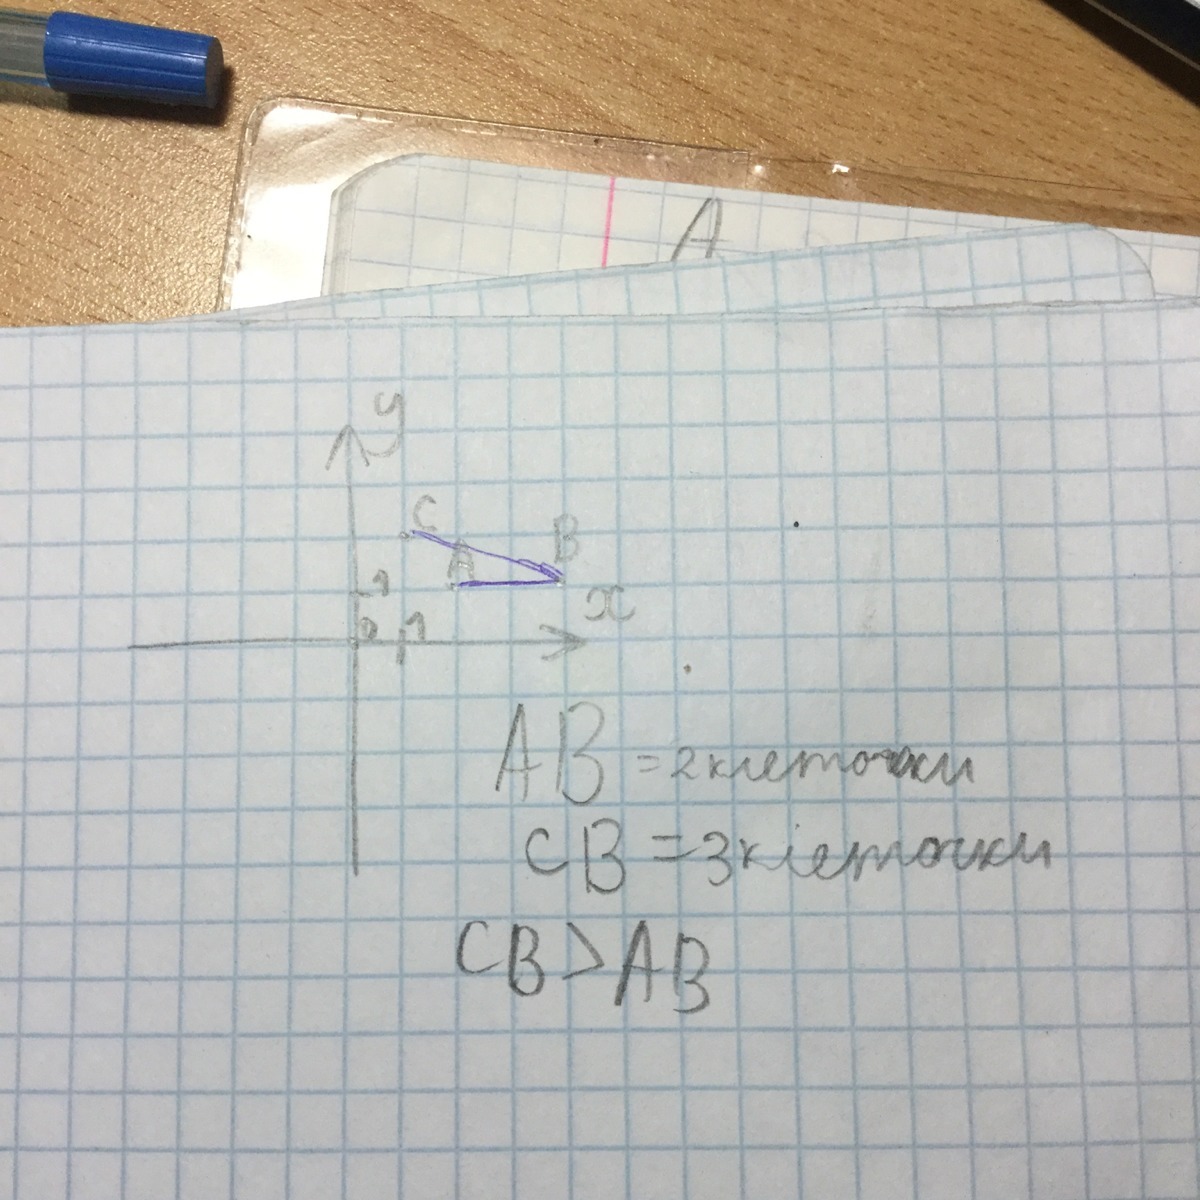 A
y
C
B
A
1
x
0 1
AB = 2 клеточки
CB = 3 клеточки
CB > AB